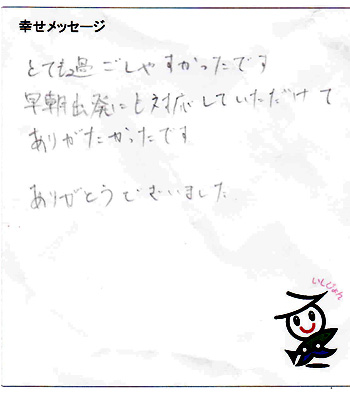 幸せメッセージ
とても過ごしやすかったです
早朝出発にも対応していただけて
ありがたかったです
ありがとうございました
いしじょん